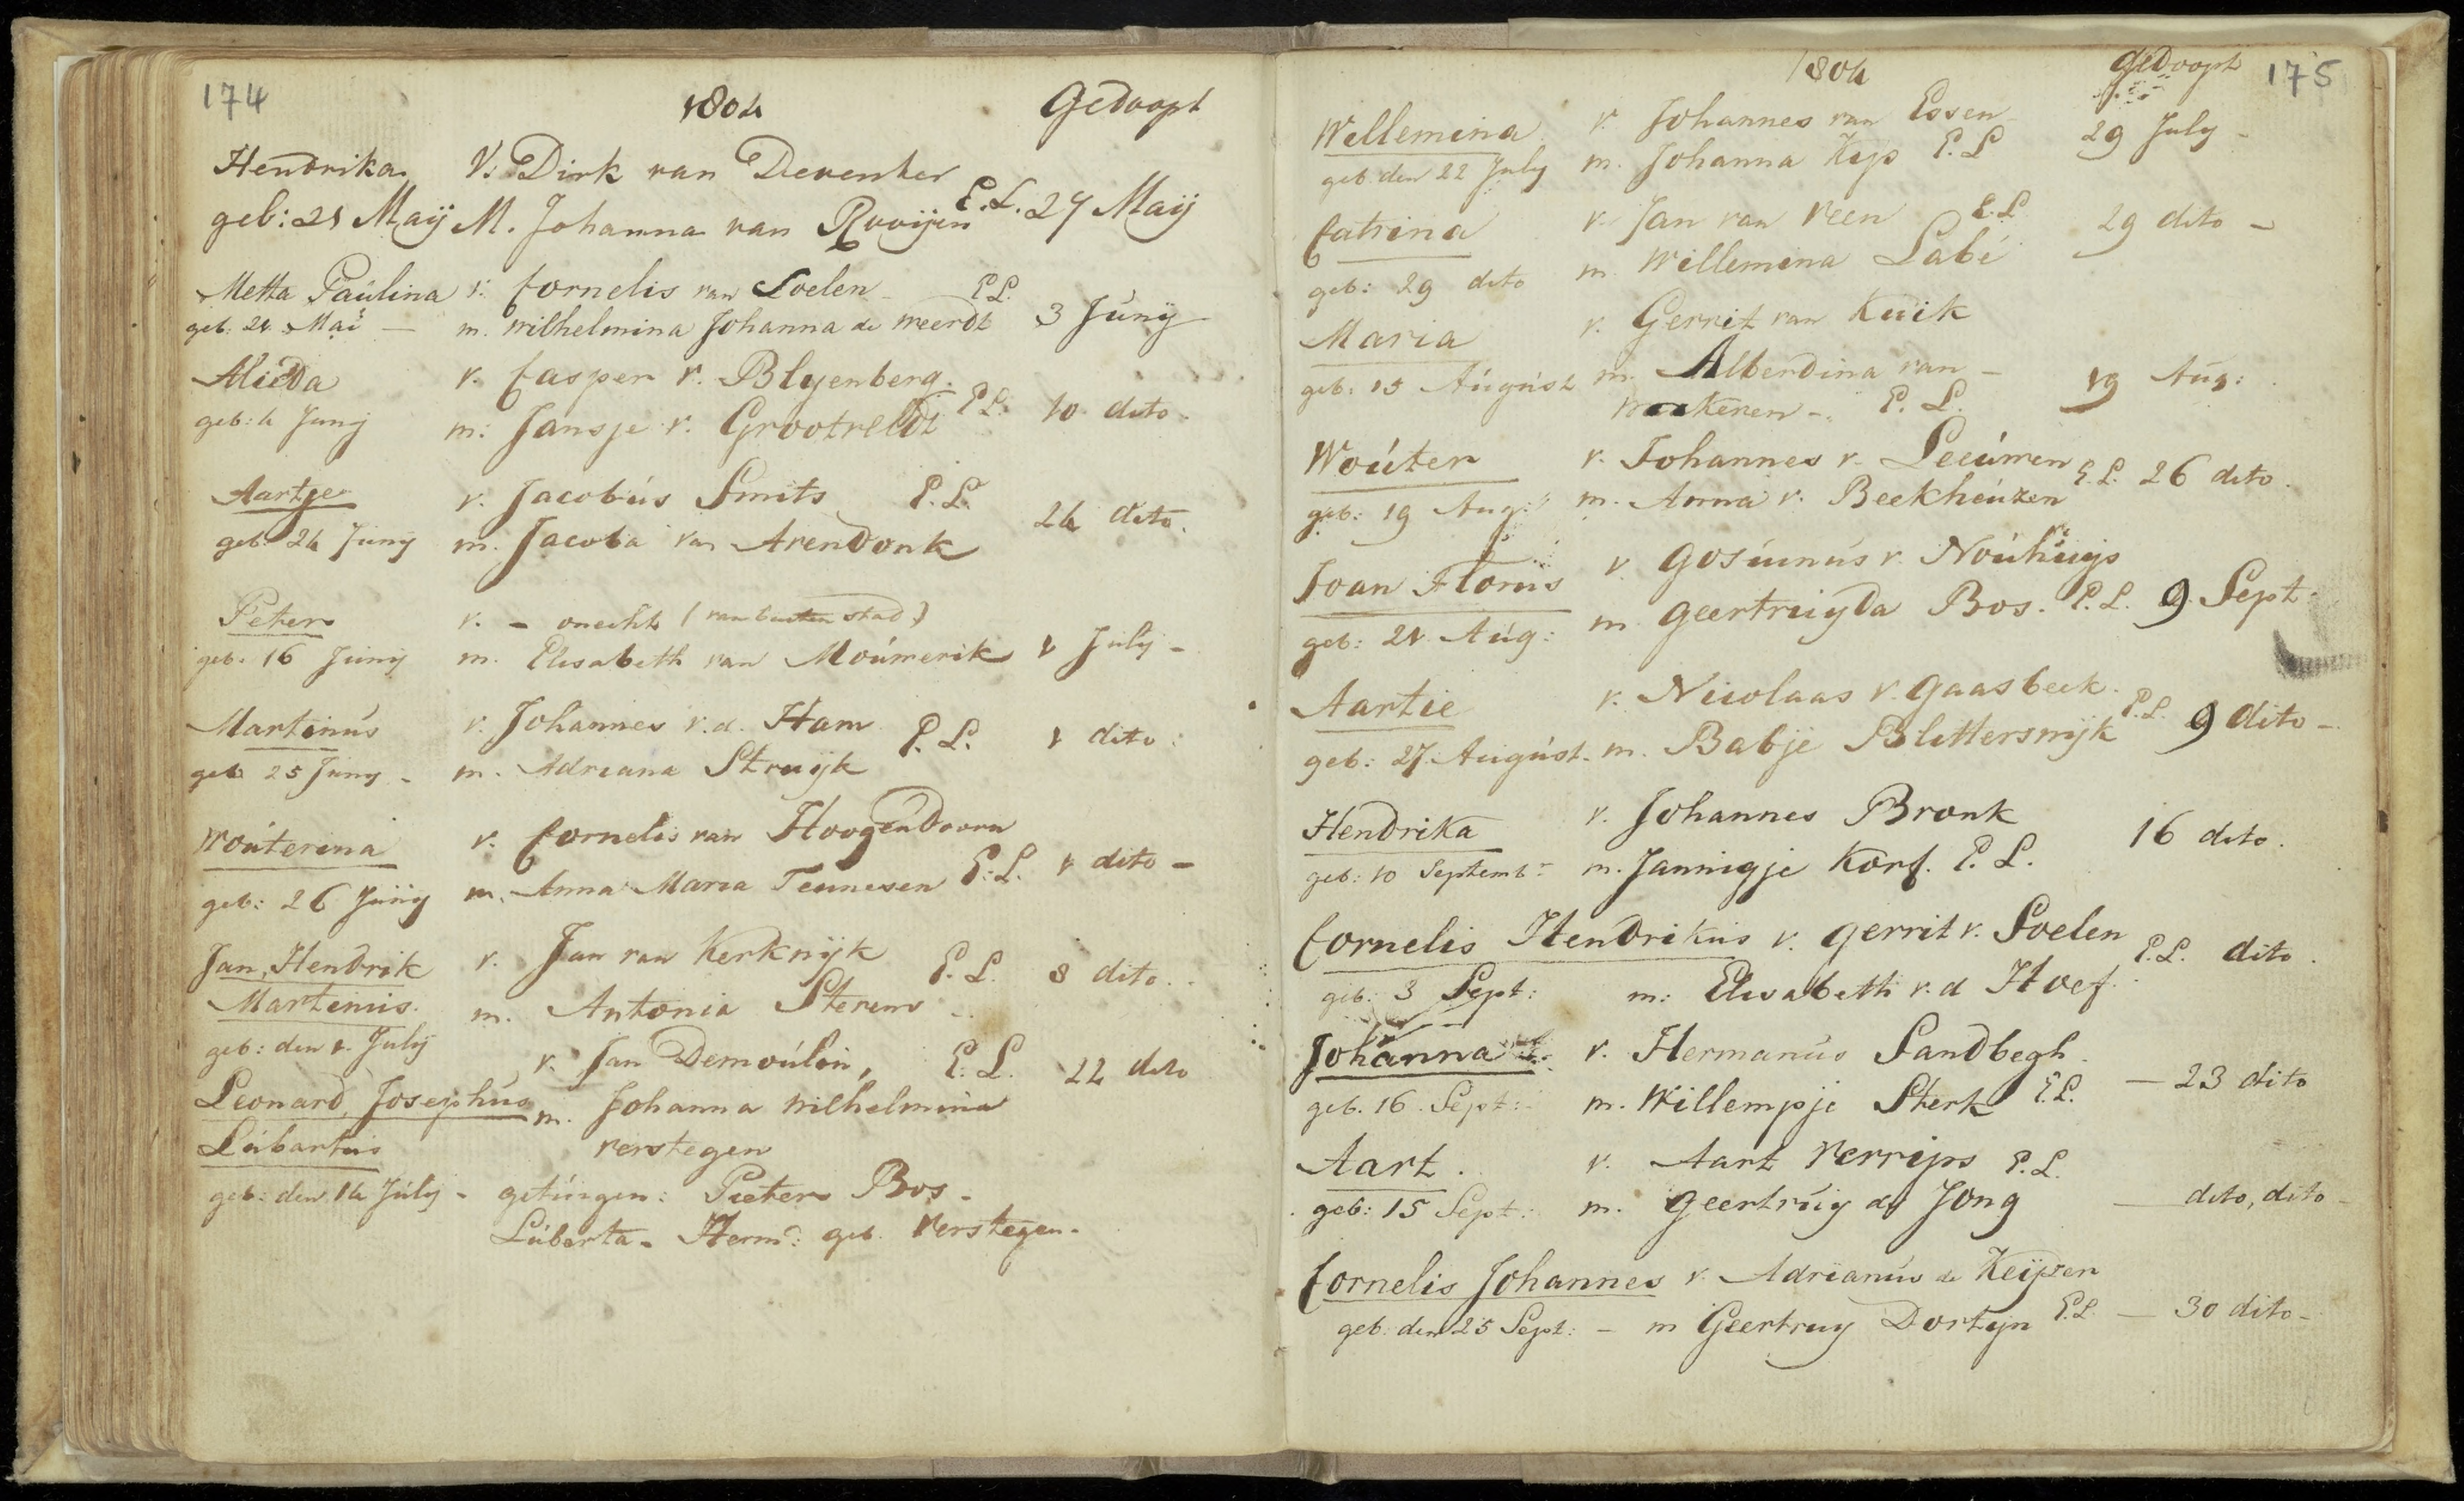 174
1804
Gedoopt
Hendrika V. Dirk van Deventer
geb: 21 Maÿ M. Johanna van Rooijen E.L. 27 Maÿ
Metta Paulina v. Cornelis van Soelen E.L.
geb: 21 Maï — m. Wilhelmina Johanna de Weerdt 3 Junÿ
Alieda v. Casper v. Blyenberg.
geb: 4 Juny m: Jansje v. Grootveldt E.L. 10 dito.
Aartje v. Jacobus Smits E.L.
geb: 24 Juny m. Jacoba van Arendonk 24 dito.
Peter v. - onecht (van buiten stad)
geb. 16 Juny m. Elisabeth van Moúrmerik 1 July -
Martinús v. Johannes v.d. Ham E.L. 1 dito.
geb 25 Juny - m. Adriana Struijk
Woúterina v. Cornelis van Hoogendoorn
geb: 26 Juny m. Anna Maria Teunesen E.L. 1 dito -
Jan, Hendrik v. Jan van Kerkwijk E.L. 8 dito.
Martinus. m. Antonia Stevens
geb: den 1. July
v. Jan Demoúlin, E.L. 22 dito
Leonard, Josephús m. Johanna Wilhelmina
Lúbartus Verstegen
geb: den 14 Júly - getúigen: Pieter Bos -
Lúberta - Herm: geb. Verstegen -
1804
Gedoopt
175
Willemina v. Johannes van Essen
geb den 22 July m. Johanna Kip E.L 29 July -
Catrina v. Jan van Veen E.L 29 dito -
geb: 29 dito m Willemina Labé
Maria v. Gerrit van Kuik
geb: 15 Aúgúst m. Alberdina van -
E. L. 19 Aúg:
Woúter v. Johannes v. Leeúwen
geb: 19 Aug: m. Anna v. Beekhúizen E.L. 26 dito.
Joan Floris v. Gosúinús v. Noúhuijs
geb: 21 Aúg: m Geertruijda Bos. E.L. 9 Sept.
Aartie v. Nicolaas v. Gaasbeek.
geb: 27. Aúgúst. m. Babje Blitterswijk E.L. 9 dito -
Hendrika v. Johannes Bronk 16 dito.
geb: 10 Septemb.r m. Jannigje Korf. E.L.
Cornelis Hendrikus v. Gerrit v. Soelen E.L. dito.
geb: 3 Sept: m: Elisabeth v.d Hoef.
Johanna v. Hermanús Sandbegh
geb. 16. Sept: m. Willempje Sterk E.L. — 23 dito
Aart. v. Aart Verrips E.L.
geb: 15 Sept: m. Geertrúy de Jong — dito, dito -
Cornelis Johannes v. Adrianús de Keijzer
geb: den 25 Sept: - m Geertruy Dortyn E.L. — 30 dito -